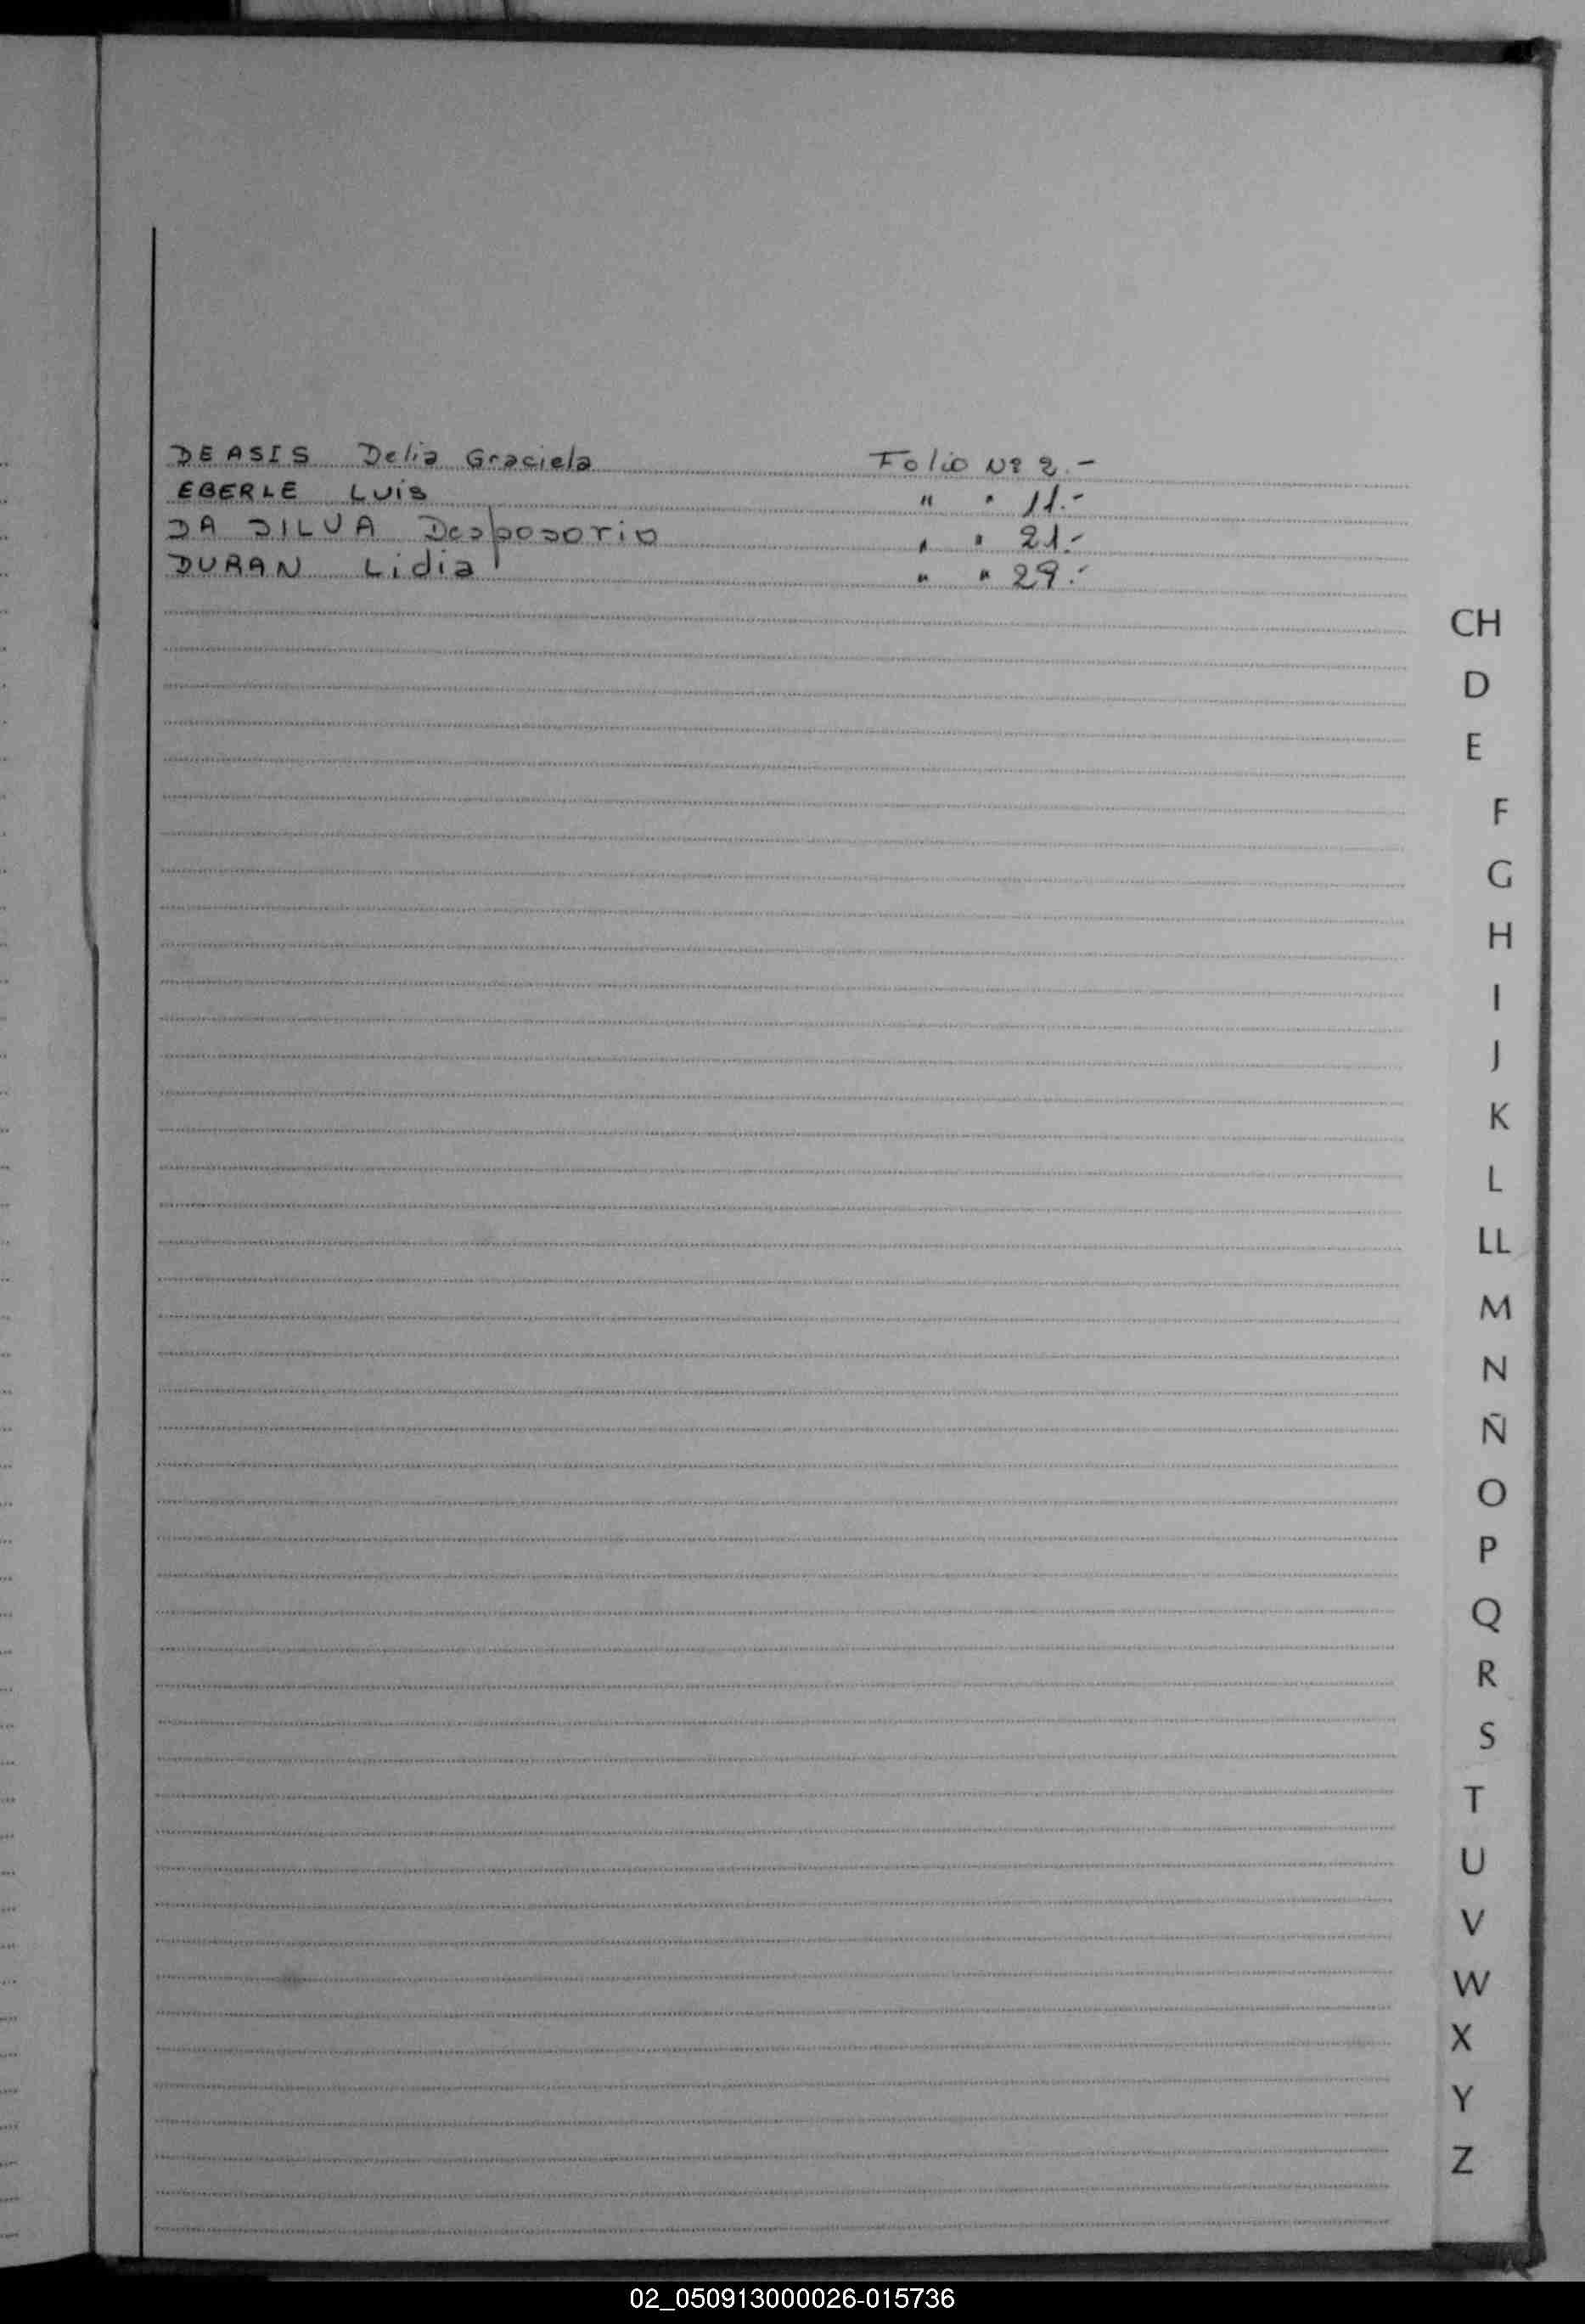 DE ASIS Delia Graciela Folio Nº 2.-
EBERLE LUIS " " 11.-
DA SILVA Desposorio " " 21.-
DURAN Lidia " " 29.-
CH
D
E
F
G
H
I
J
K
L
LL
M
N
Ñ
O
P
Q
R
S
T
U
V
W
X
Y
Z
02_050913000026-015736